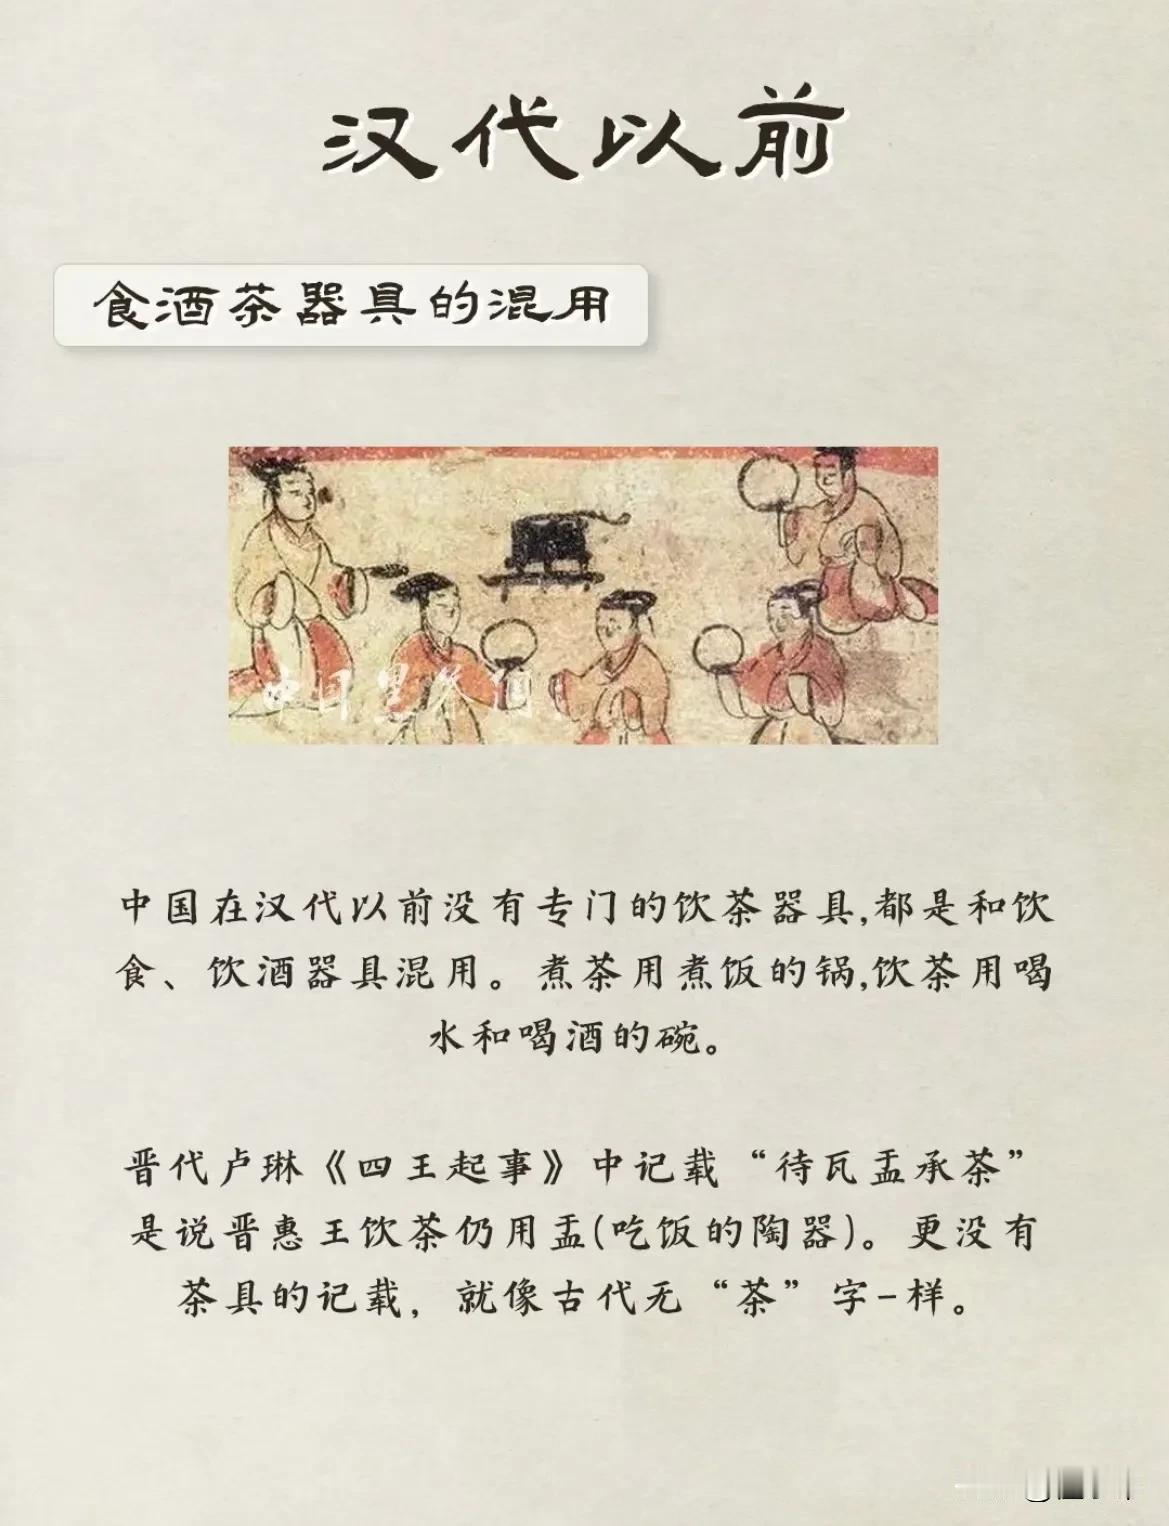 汉代以前
食酒茶器具的混用
中国在汉代以前没有专门的饮茶器具,都是和饮
食、饮酒器具混用。煮茶用煮饭的锅,饮茶用喝
水和喝酒的碗。
晋代卢琳《四王起事》中记载“待瓦盂承茶”
是说晋惠王饮茶仍用盂(吃饭的陶器)。更没有
茶具的记载，就像古代无“茶”字-样。